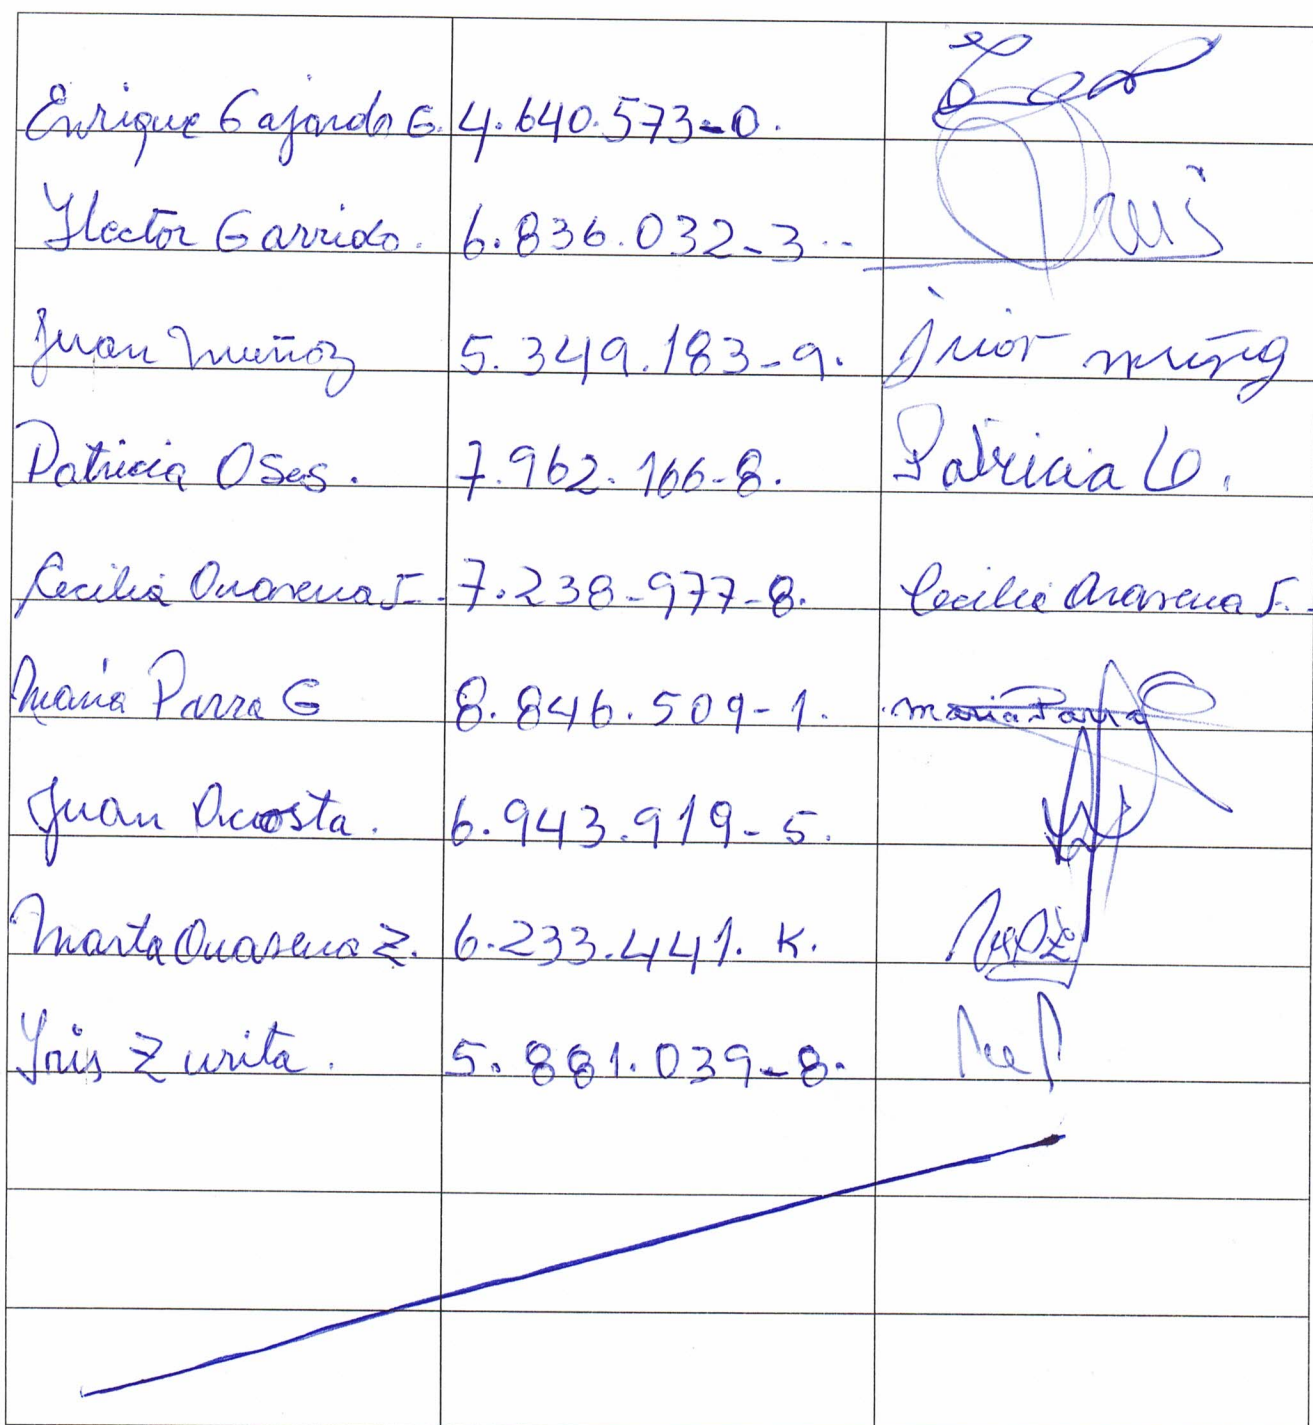 Enrique Gajardo G. 4.640.573-0.
Hector Garrido. 6.836.032-3..
Juan Muñoz 5.349.183-9. Juan muñoz
Patricia Oses. 7.962.166-8. Patricia O.
Cecilia Aravena F.- 7.238-977-8. Cecilia Aravena F.-
Maria Parra G 8.846.509-1. maria Parra
Juan Acosta. 6.943.919-5.
Marta Aravena Z. 6.233.441. K.
Iris Zurita. 5.881.039-8.